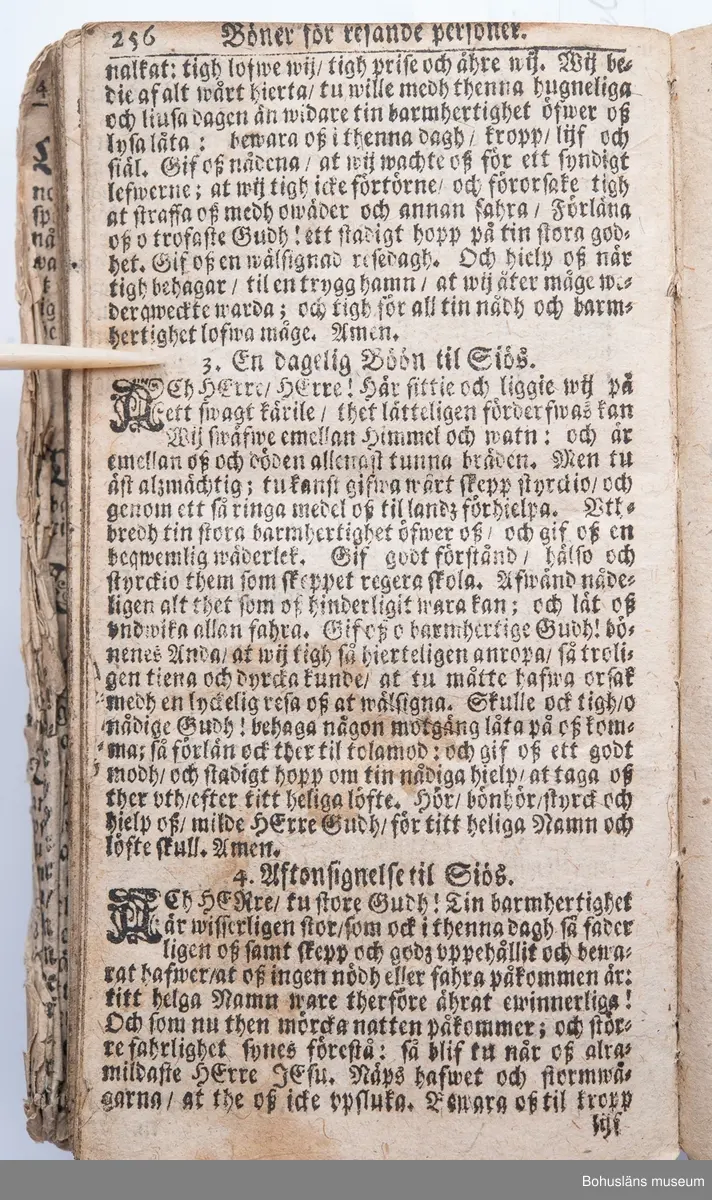 256 Böner för resande personer.
nalkat: tigh lofwe wij/ tigh prise och ähre wij. Wij be-
die af alt wårt hierta/ tu wille medh thenna hugneliga
och liusa dagen än widare tin barmhertighet öfwer oß
lysa låta: bewara oß i thenna dagh/ kropp/ lijf och
siäl. Gif oß nådena/ at wij wachte oß för ett syndigt
lefwerne; at wij tigh icke förtörne/ och förorsake tigh
at straffa oß medh owäder och annan fahra/ Förläna
oß o trofaste Gudh! ett stadigt hopp på tin stora god-
het. Gif oß en wälsignad resedagh. Och hielp oß när
tigh behagar/ til en trygg hamn/ at wij åter måge we-
derqweckte warda; och tigh för all tin nådh och barm-
hertighet lofwa måge. Amen.
3. En dagelig Böön til Siös.
ACh HErre/ HErre! Här sittie och liggie wij på
ett swagt kärile/ thet lätteligen förderfwas kan
Wij swäfwe emellan Himmel och watn: och är
emellan oß och döden allenast tunna bräden. Men tu
äst alzmächtig; tu kanst gifwa wårt skepp styrckio/ och
genom ett så ringa medel oß til landz förhielpa. Vth-
bredh tin stora barmhertighet öfwer oß/ och gif oß en
beqwemlig wäderlek. Gif godt förstånd/ hälso och
styrckio them som skeppet regera skola. Afwänd nåde-
ligen alt thet som oß hinderligit wara kan; och låt oß
vndwika allan fahra. Gif oß o barmhertige Gudh! bö-
nenes Anda/ at wij tigh så hierteligen anropa/ så troli-
gen tiena och dyrcka kunde/ at tu måtte hafwa orsak
medh en lyckelig resa oß at wälsigna. Skulle ock tigh/ o
nådige Gudh! behaga någon motgång låta på oß kom-
ma; så förlän ock ther til tolamod: och gif oß ett godt
modh/ och stadigt hopp om tin nådiga hielp/ at taga oß
ther vth/ efter titt heliga löfte. Hör/ bönhör/ styrck och
hielp oß/ milde HErre Gudh/ för titt heliga Namn och
löfte skull. Amen.
4. Aftonsignelse til Siös.
ACh HERre/ tu store Gudh! Tin barmhertighet
är wisserligen stor/ som ock i thenna dagh så fader
ligen oß samt skepp och godz vppehållit och bewa-
rat hafwer/ at oß ingen nödh eller fahra påkommen är:
titt helga Namn ware therföre ährat ewinnerliga!
Och som nu then mörcka natten påkommer; och stör-
re fahrlighet synes förestå: så blif tu när oß alra-
mildaste HErre JEsu. Näps hafwet och stormwå-
garna/ at the oß icke vpsluka. Bewara oß til kropp
lijf
Bohusläns museum